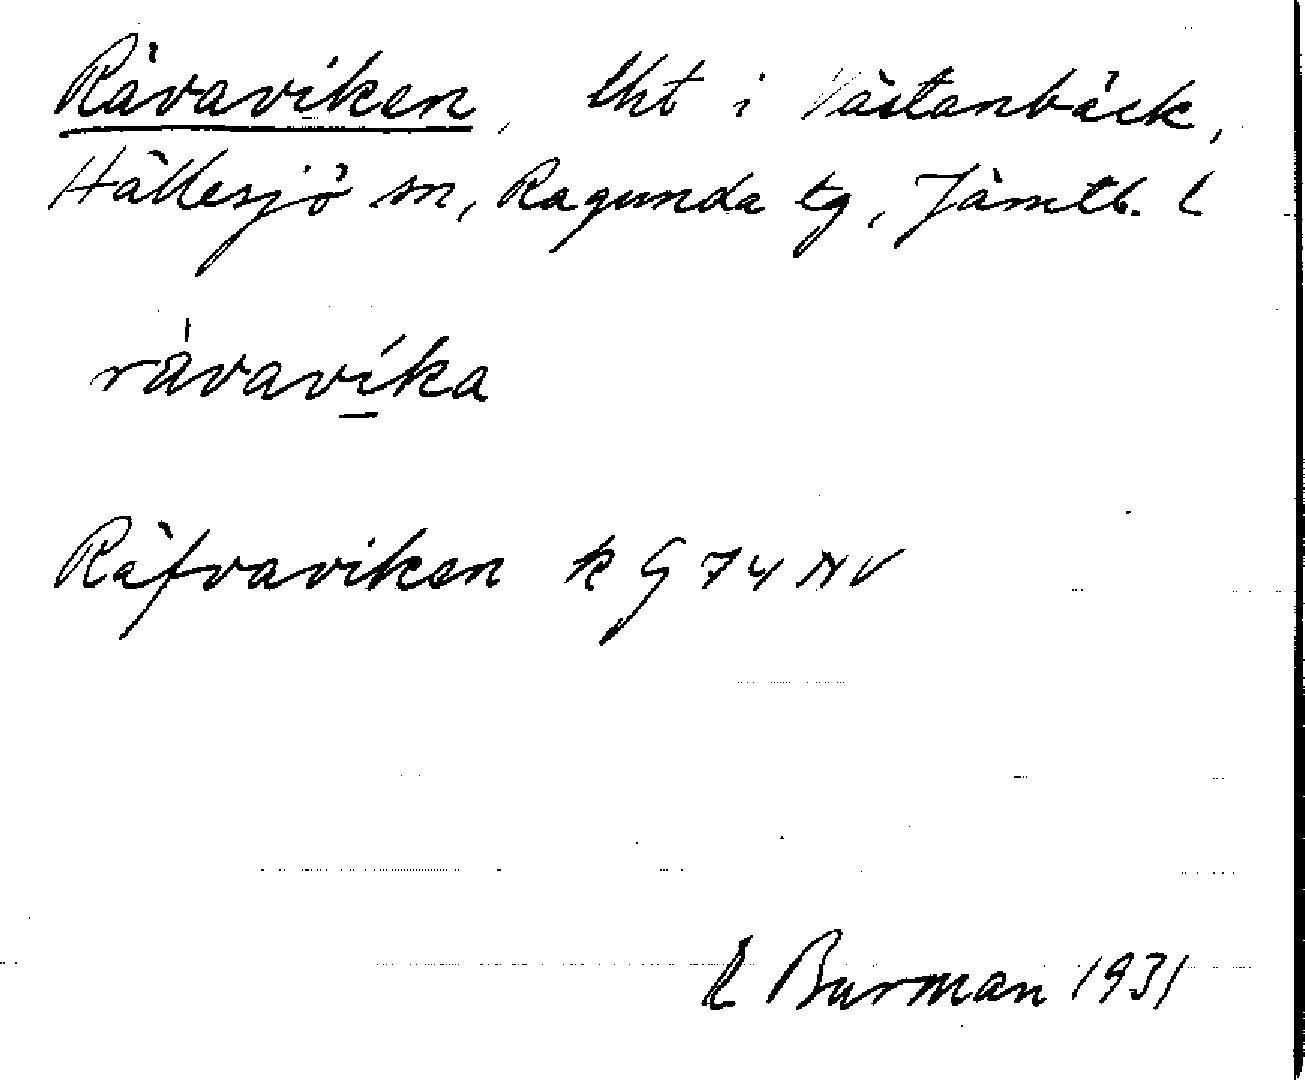 Rävaviken, lht i Västanbäck,
Hällesjö sn, Ragunda tg, Jämtl. l
rävavika
Räfvaviken k G 74 NV
E Burman 1931